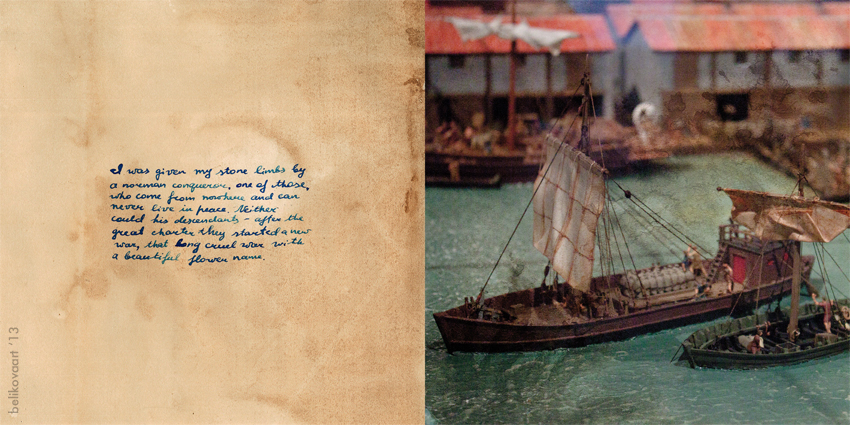 I was given my stone limbs by
a norman conqueror, one of those,
who come from nowhere and can
never live in peace. Neither
could his descendants - after the
great charter they started a new
war, that long cruel war with
a beautiful flower name.
belikovaart '13